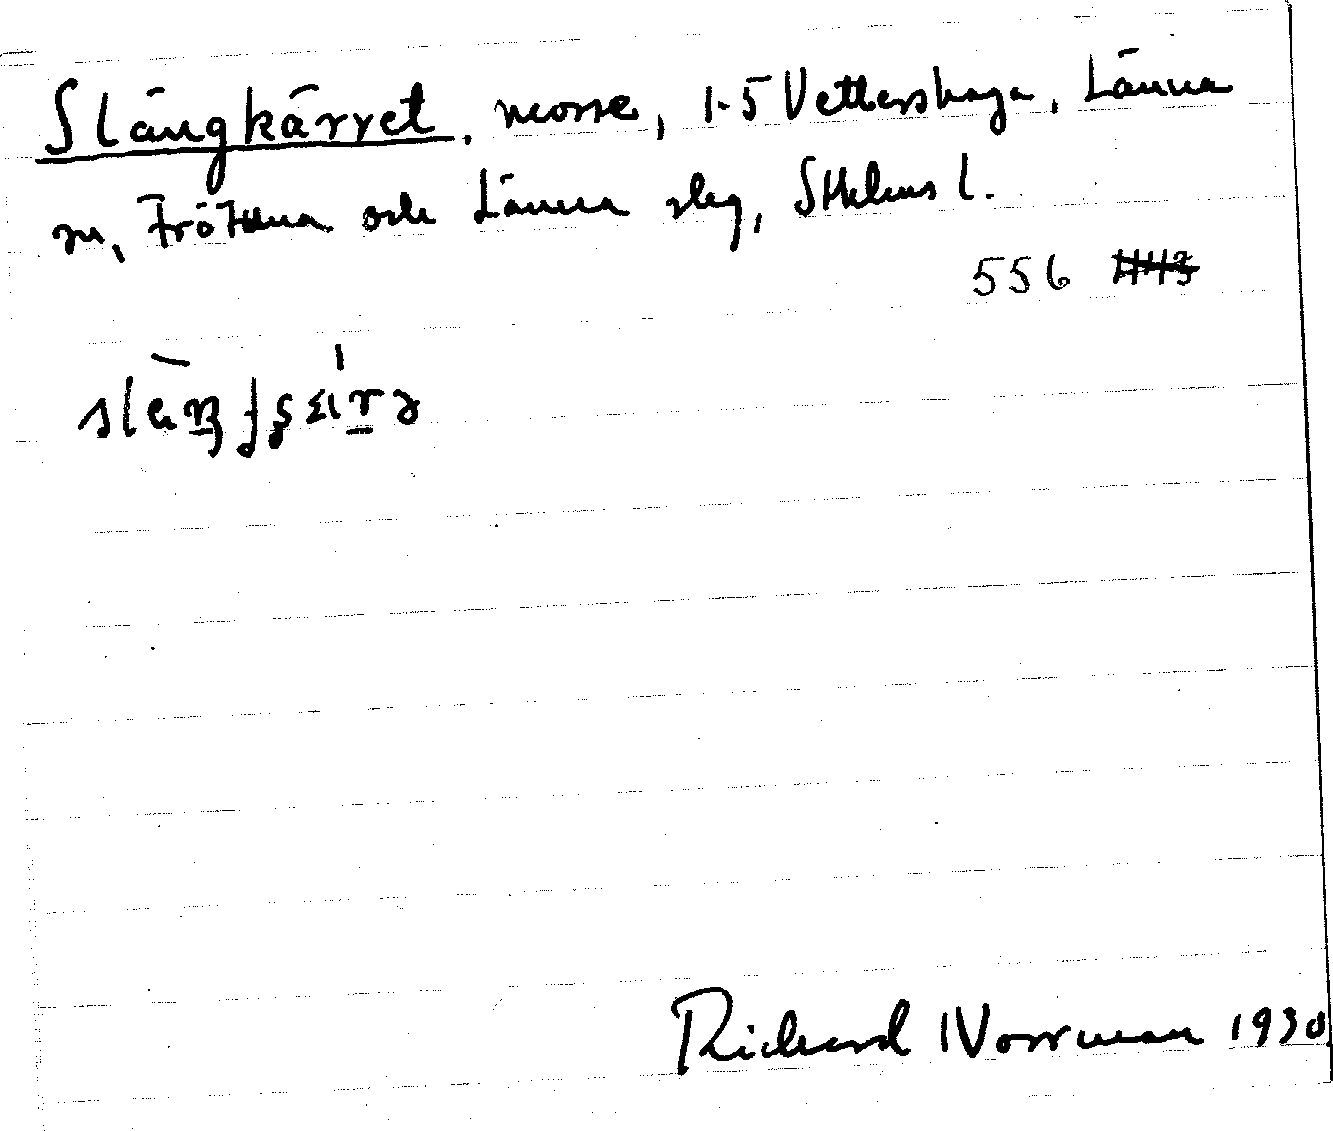 Slängkärret, mosse, 1-5 Vettershaga, Länna
sn, Frötuna och Länna slg, Sthlms l.
556
Richard Norrman 1930